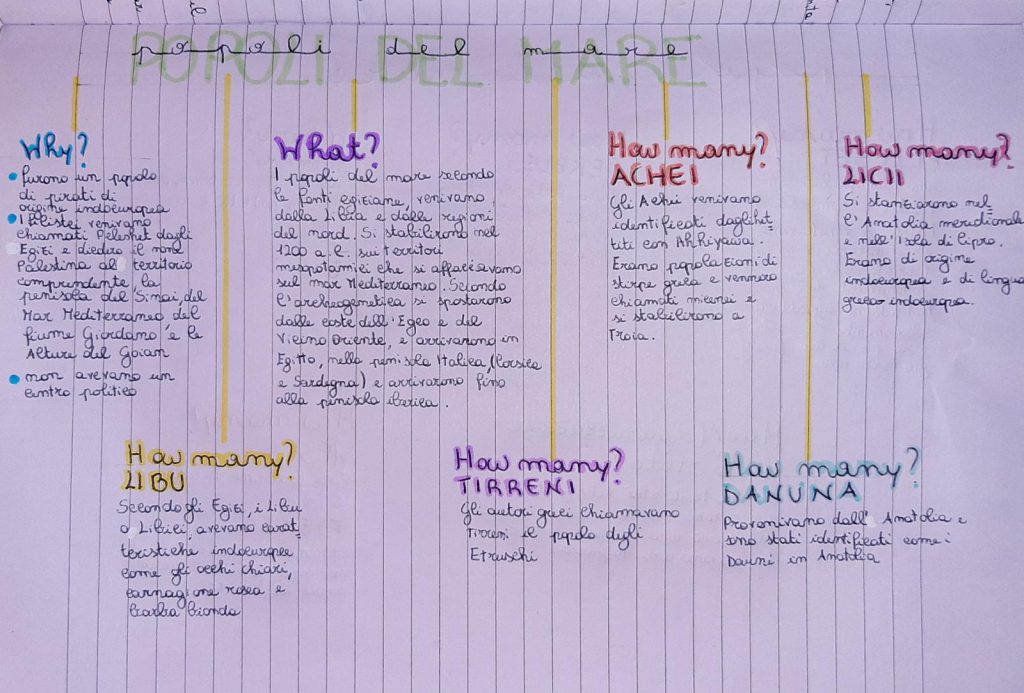 popoli del mare
POPOLI DEL MARE
Why?
furono un popolo
di pirati di
origine indoeuropea
I filistei venivano
chiamati Peleshet dagli
Egizi e diedero il nome
Palestina al territorio
comprendente, la
penisola del Sinai, del
Mar Mediterraneo del
fiume Giordano e le
Alture del Goian
non avevano un
centro politico
What?
I popoli del mare secondo
le fonti egiziane, venivano
dalla Libia e dalle regioni
del nord. Si stabilirono nel
1200 a.C. sui territori
mesopotamici che si affacciavano
sul mar Mediterraneo. Secondo
l'archeogenetica si spostarono
dalle coste dell'Egeo e del
Vicino Oriente, e arrivarono in
Egitto, nella penisola Italica, (Corsica
e Sardegna) e arrivarono fino
alla penisola iberica.
How many?
ACHEI
Gli Achei venivano
identificati dagli hit_
titi con Ahhiyawa.
Erano popolazioni di
stirpe greca e vennero
chiamati micenei e
si stabilirono a
Troia.
How many?
LICII
Si stanziarono nel_
l'Anatolia meridionale
e nell'Isola di Cipro.
Erano di origine
indoeuropea e di lingua
greco indoeuropea.
How many?
LIBU
Secondo gli Egizi, i Libu
o Libici, avevano carat_
teristiche indoeuropee
come gli occhi chiari,
carnagione rosea e
barba bionda
How many?
TIRRENI
Gli autori greci chiamavano
Tirreni il popolo degli
Etruschi
How many?
DANUNA
Provenivano dall'Anatolia e
sono stati identificati come i
Dauni in Anatolia